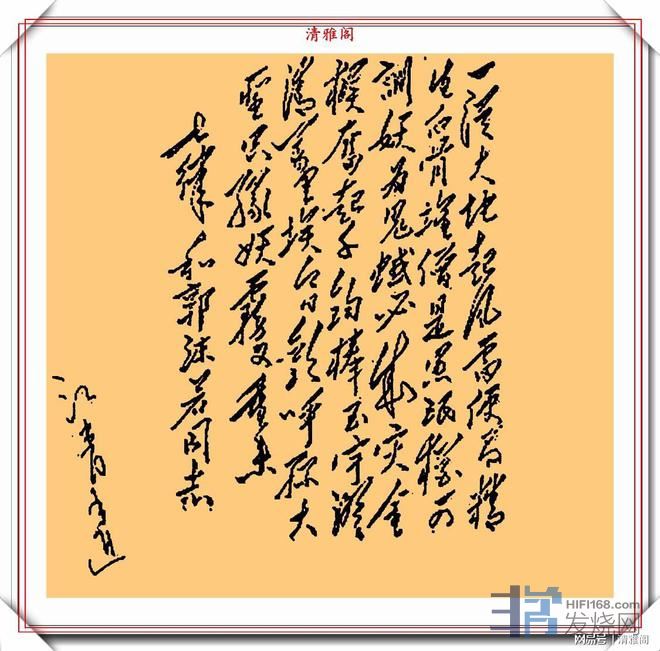 清雅阁
一從大地起风雷便有精
生白骨堆僧是愚氓猶可
訓妖为鬼蜮必成灾金
猴奮起千钧棒玉宇澄
清萬里埃今日歡呼孫大
聖只缘妖雾又重来
七律 和郭沫若同志
江青
HIFI168.com
发烧网
网易号 | 清雅阁